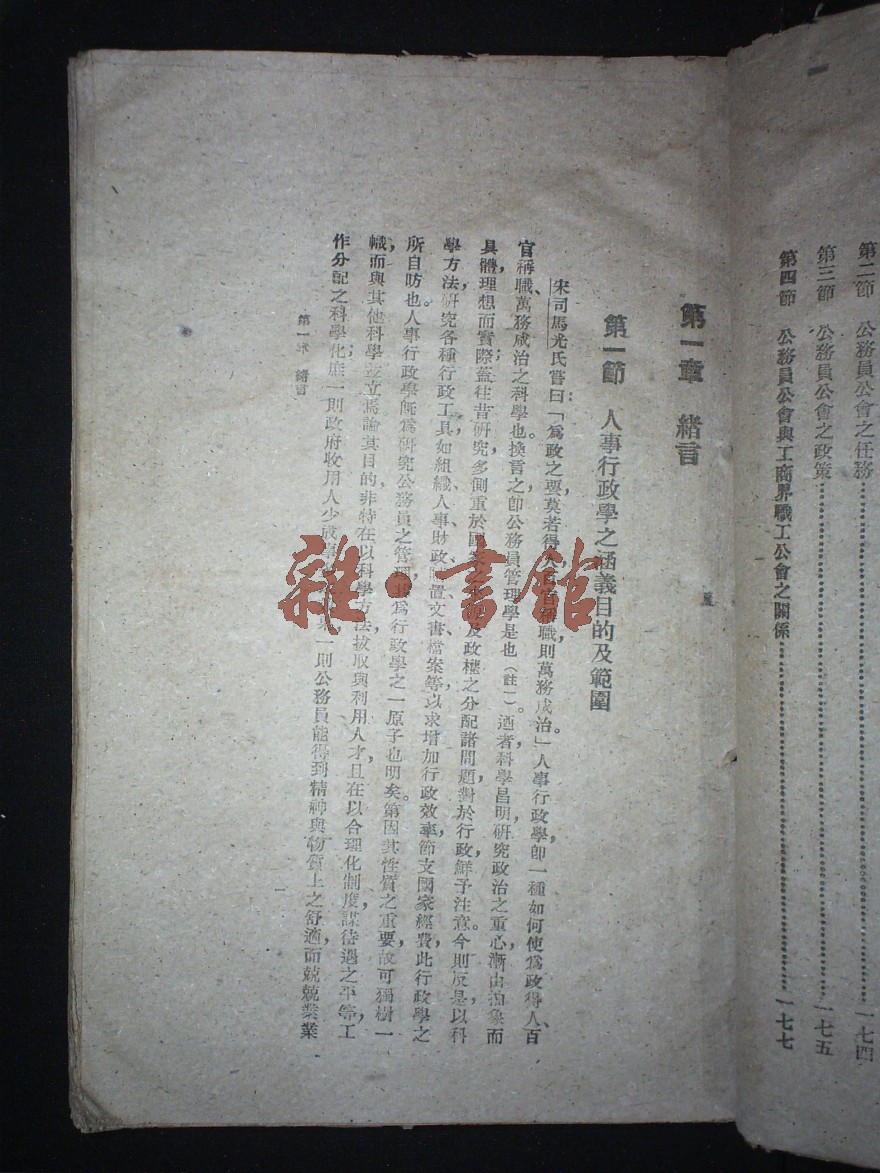 第二節 公務員公會之任務……一七四
第三節 公務員公會之政策……一七五
第四節 公務員公會與工商界職工公會之關係……一七七
第一章 緒言
第一節 人事行政學之涵義目的及範圍
宋司馬光氏嘗曰:「為政之要,莫若得人,百官稱職,則萬務咸治。」人事行政學,即一種如何使為政得人、百
官稱職、萬務咸治之科學也。換言之,即公務員管理學是也(註一)。迺者科學昌明,研究政治之重心,漸由抽象而
具體,理想而實際。蓋往昔研究,多側重於國家之及政權之分配諸問題,對於行政,鮮予注意。今則反是,以科
學方法,研究各種行政工具,如組織、人事、財政、置、文書、檔案等,以求增加行政效率,節支國家經費,此行政學之
所自昉也。人事行政學旣為研究公務員之管理,其為行政學之一原子也明矣。第因其性質之重要,故可獨樹一
幟,而與其他科學並立焉。論其目的,非特在以科學方法,拔取與利用人才,且在以合理化制度,謀待遇之平等,工
作分配之科學化。庶一則政府收用人少成事一則公務員能得到精神與物質上之舒適,而兢兢業業
第一章 緒言
一
雜·書館